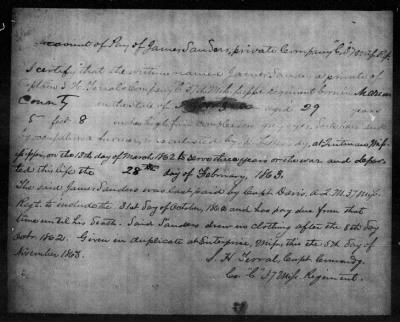 account of Pay of James Sanders, private Company "C" 37 Miss Regt
I certify that the within named James Sanders a private of
Captain S. H. Terral's Company C 37th Mississippi regiment born in Marion
County in the state of aged 29 years
5 feet 8 inches high complexion eyes hair and
by occupation a farmer, enlisted by at Quitman Miss-
issippi, on the 13th day of March 1862 to serve three years or the war and depar-
ted this life the 28th day of February, 1863.
The said James Sanders was last paid by Capt Davis, A.Q.M. 37 Miss.
Regt. to include the 31st day of October, 1862 and has pay due from that
time until his death. Said Sanders drew no clothing after the 8th day
Octr. 1862. Given in duplicate at Enterprise, Miss, this the 5th day of
November 1863.
S. H. Terral Capt Commdg.
Co "C" 37 Miss. Regiment.